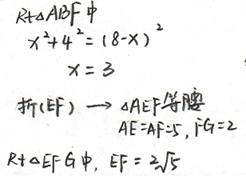 Rt△ABF中
x²+4²=(8-x)²
x=3
折(EF) → △AEF等腰
AE=AF=5, FG=2
Rt△EFG中, EF=2√5